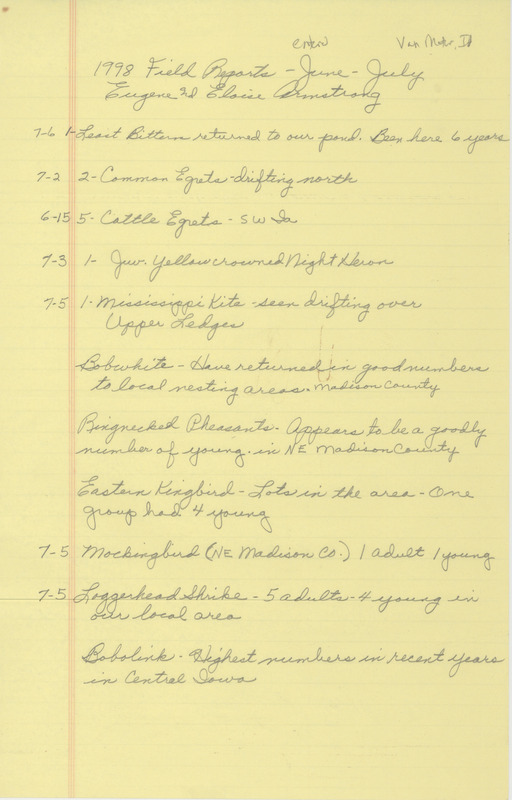 entered
Van Meter, Ia
1998 Field Reports - June - July
Eugene and Eloise Armstrong
7-6 1- Least Bittern returned to our pond. Been here 6 years
7-2 2- Common Egrets - drifting north
6-15 5- Cattle Egrets - SW Ia
7-3 1- Juv. Yellowcrowned Night Heron
7-5 1- Mississippi Kite - seen drifting over
Upper Ledges
Bobwhite - Have returned in good numbers
to local nesting areas. Madison County
Ringnecked Pheasants - Appears to be a goodly
number of young. in NE Madison County
Eastern Kingbird - Lots in the area - One
group had 4 young
7-5 Mockingbird (NE Madison Co.) 1 adult 1 young
7-5 Loggerhead Shrike - 5 adults - 4 young in
our local area
Bobolink - Highest numbers in recent years
in Central Iowa